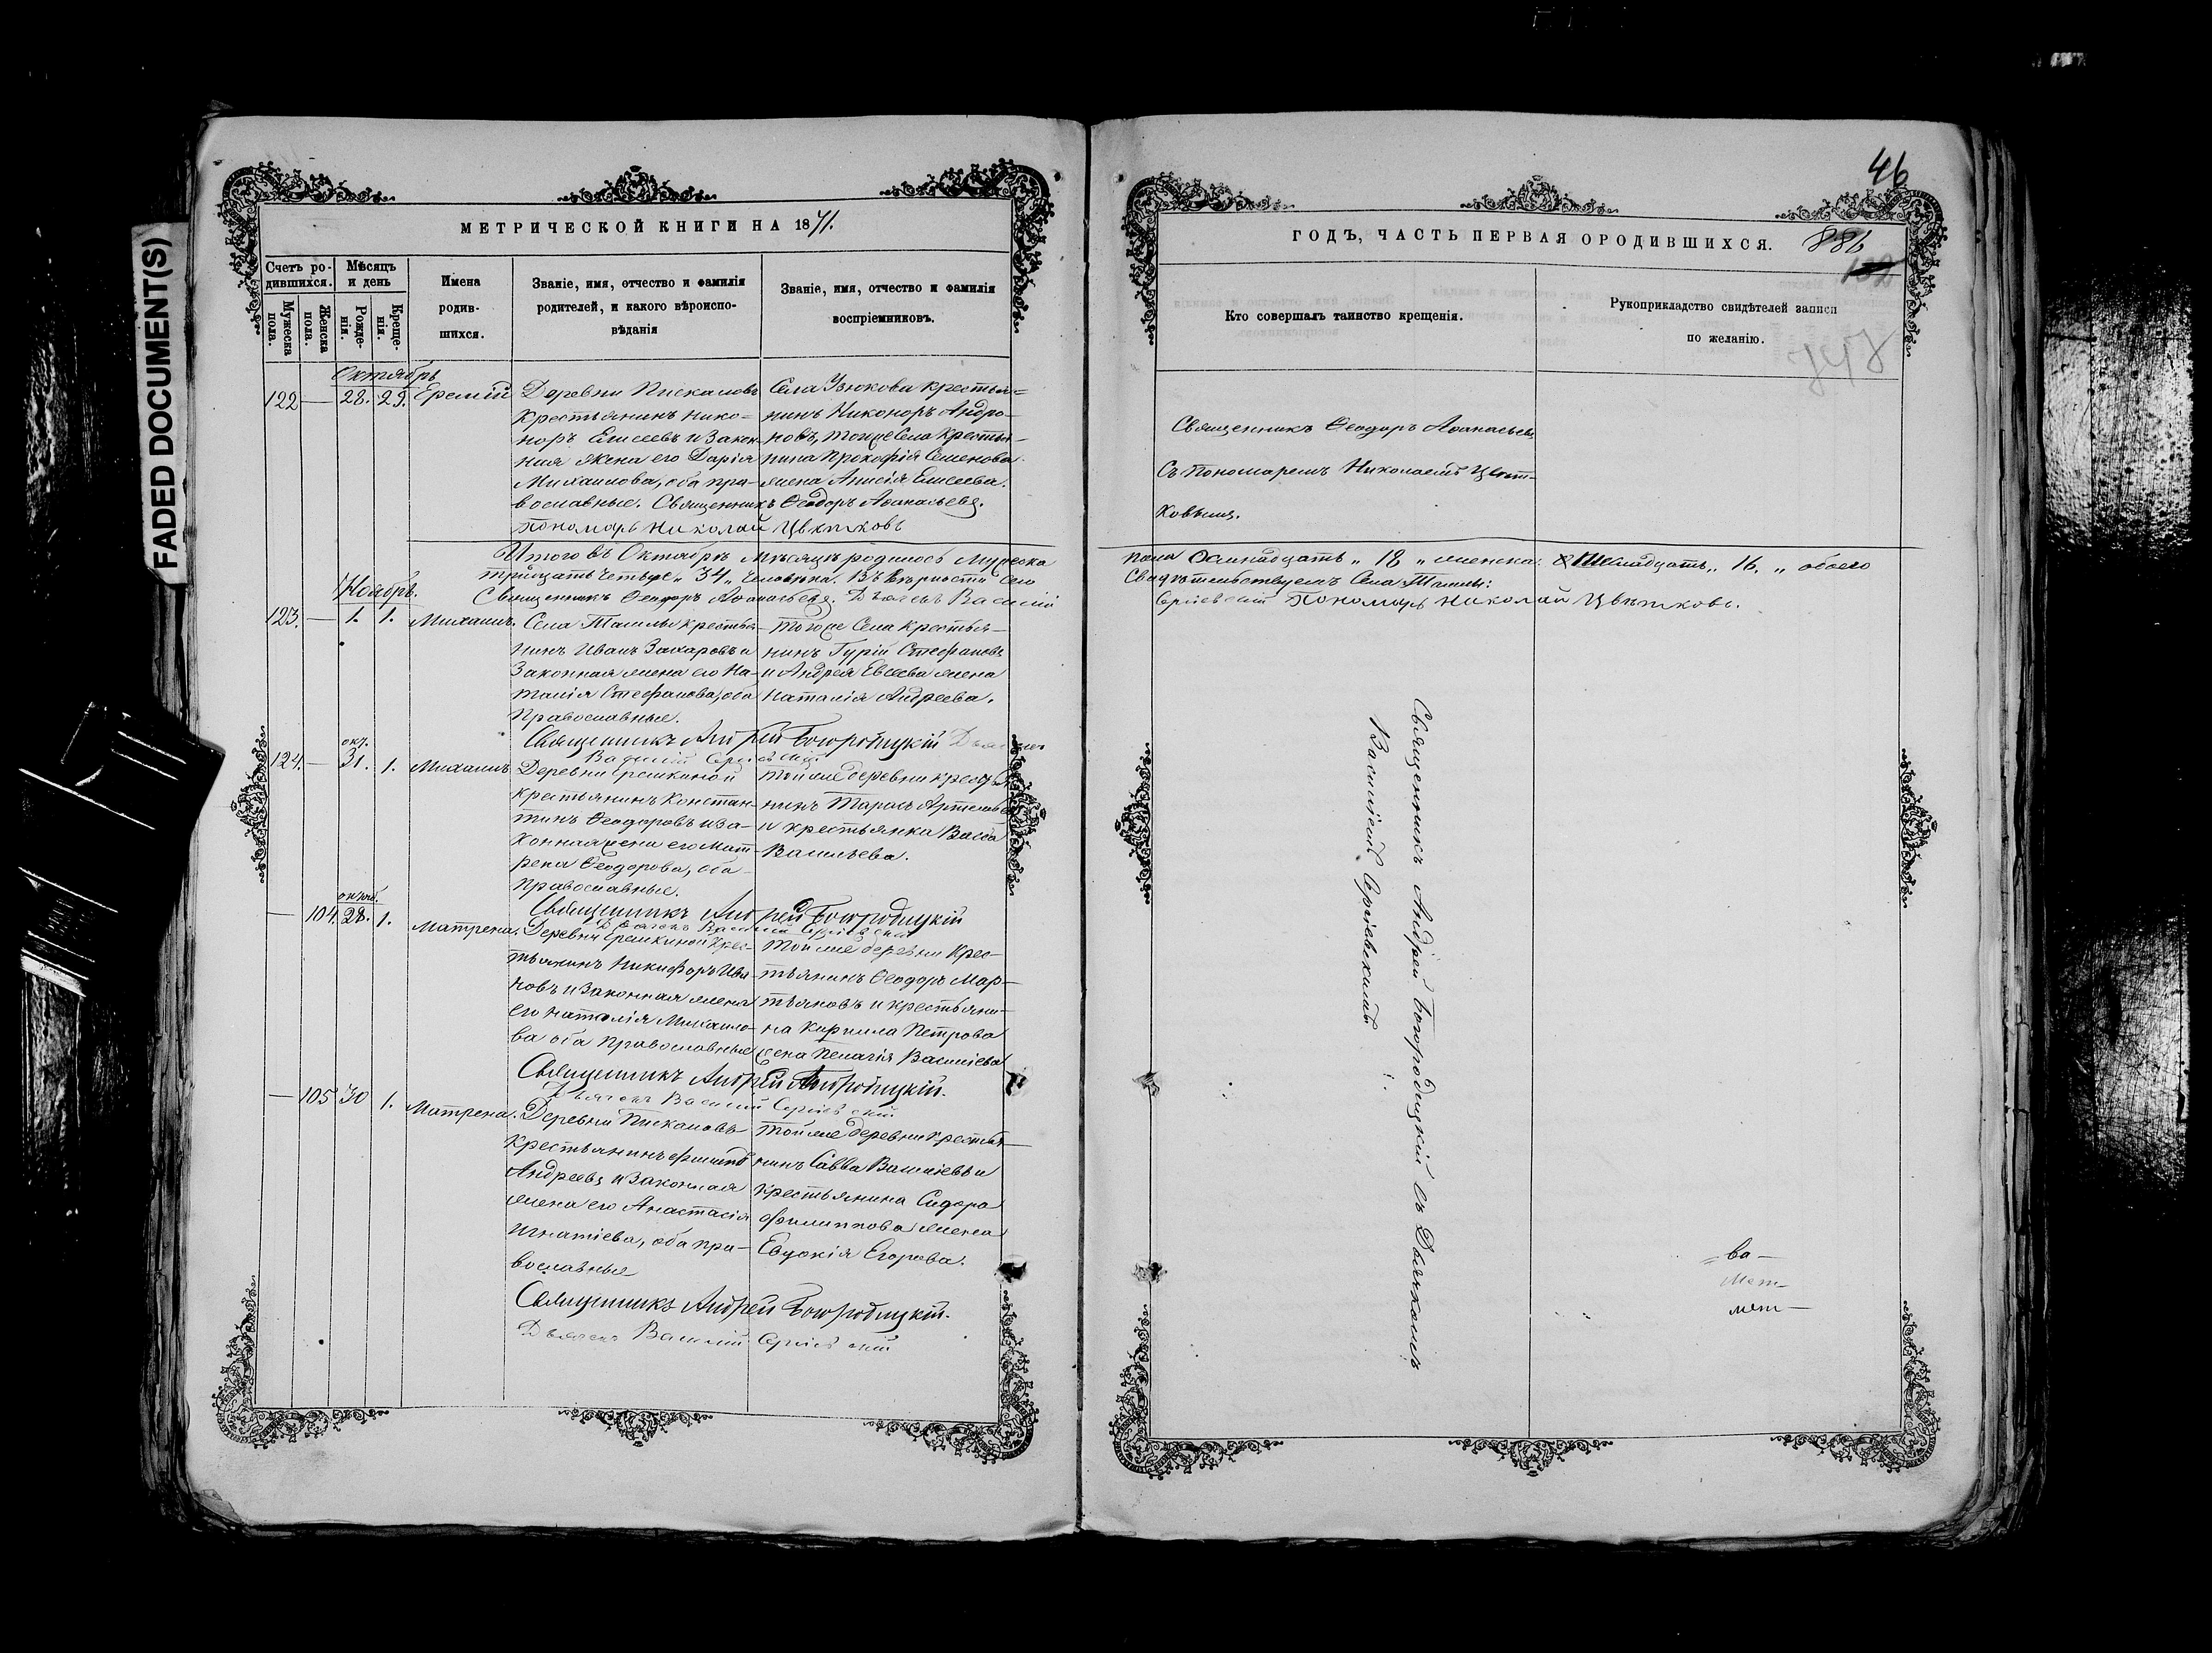 FADED DOCUMENT(S)
МЕТРИЧЕСКОЙ КНИГИ НА 1871.
Счетъ родившихся.
Мужеска пола.
Женска пола.
Мѣсяцъ и день
Рожденія.
Крещенія.
Имена родившихся.
Званіе, имя, отчество и фамилія родителей, и какого вѣроисповѣданія
Званіе, имя, отчество и фамилія воспріемниковъ.
Октябрь
122 — 28. 29. Еремій
Деревни Пискаловъ
Крестьянинъ Нико-
норъ Елисеевъ и Закон-
ная жена его Дарія
Михаилова, оба пра-
вославные. Священникъ Ѳеодоръ Аѳанасьевъ.
Пономарь Николай Цвѣтковъ
Села Узюкова крестья-
нинъ Никоноръ Андро-
новъ, тогоже Села Крестья-
нина Прокофія Семенова
жена Анисія Елисеева.
Итого въ Октябрѣ Мѣсяцѣ родилось Мужеска
тридцать четыре „ 34 „ человѣка. Въ вѣрности сего
Священникъ Ѳеодоръ Аѳанасьевъ. Дьячекъ Василій
Ноябрь.
123. — 1. 1. Михаилъ.
Села Ташлы крестья-
нинъ Иванъ Захаровъ и
Законная жена его На-
талія Стефанова, оба
Православные.
Тогоже Села Крестья-
нинъ Гурій Стефановъ
и Андрея Евсеева жена
Наталія Андреева.
Священникъ Андрей Богородицкій Дьячекъ
Василій Сергіевскій
окт.
124. — 31. 1. Михаилъ
Деревни Ерешкиной
крестьянинъ Констан-
тинъ Ѳеодоровъ и за-
конная жена его Мат-
рена Ѳеодорова, оба
Православные.
Тойже деревни крестья-
нинъ Тарасъ Артемьевъ
и крестьянка Васса
Васильева.
Священникъ Андрей Богородицкій
Дьячекъ Василій Сергіевскій
октяб.
— 104. 28. 1. Матрена.
Деревни Ерешкиной Крес-
тьянинъ Никифоръ Ива-
новъ и Законная жена
его Наталія Михаило-
ва оба Православные
Тойже деревни Крес-
тьянинъ Ѳеодоръ Мар-
тьяновъ и крестьяни-
на Кирилла Петрова
жена Пелагія Васильева
Священникъ Андрей Богородицкій.
Дьячекъ Василій Сергіевскій
— 105 30 1. Матрена.
Деревни Пискаловъ
Крестьянинъ
Андреевъ и Законная
жена его Анастасія
Игнатіева, оба пра-
вославные
Тойже деревни крестья-
нинъ Савва Васильевъ и
крестьянина Сидора
Филиппова жена
Евдокія Егорова.
Священникъ Андрей Богородицкій.
Дьячекъ Василій Сергіевскій
46
ГОДЪ, ЧАСТЬ ПЕРВАЯ О РОДИВШИХСЯ.
886
Кто совершалъ таинство крещенія.
Рукоприкладство свидѣтелей записи по желанію.
Священникъ Ѳеодоръ Аѳанасьевъ
Съ Пономаремъ Николаемъ Цвѣт-
ковымъ.
пола Осмнадцать „ 18 „ женска: Шестнадцать „ 16. „ обоего
Свидѣтельствуемъ Села Ташлы:
Сергіевскій Пономарь Николай Цвѣтковъ.
Священникъ Андрей Богородицкій съ Дьячкомъ
Василіемъ Сергіевскимъ
ва —
мет —
мет —